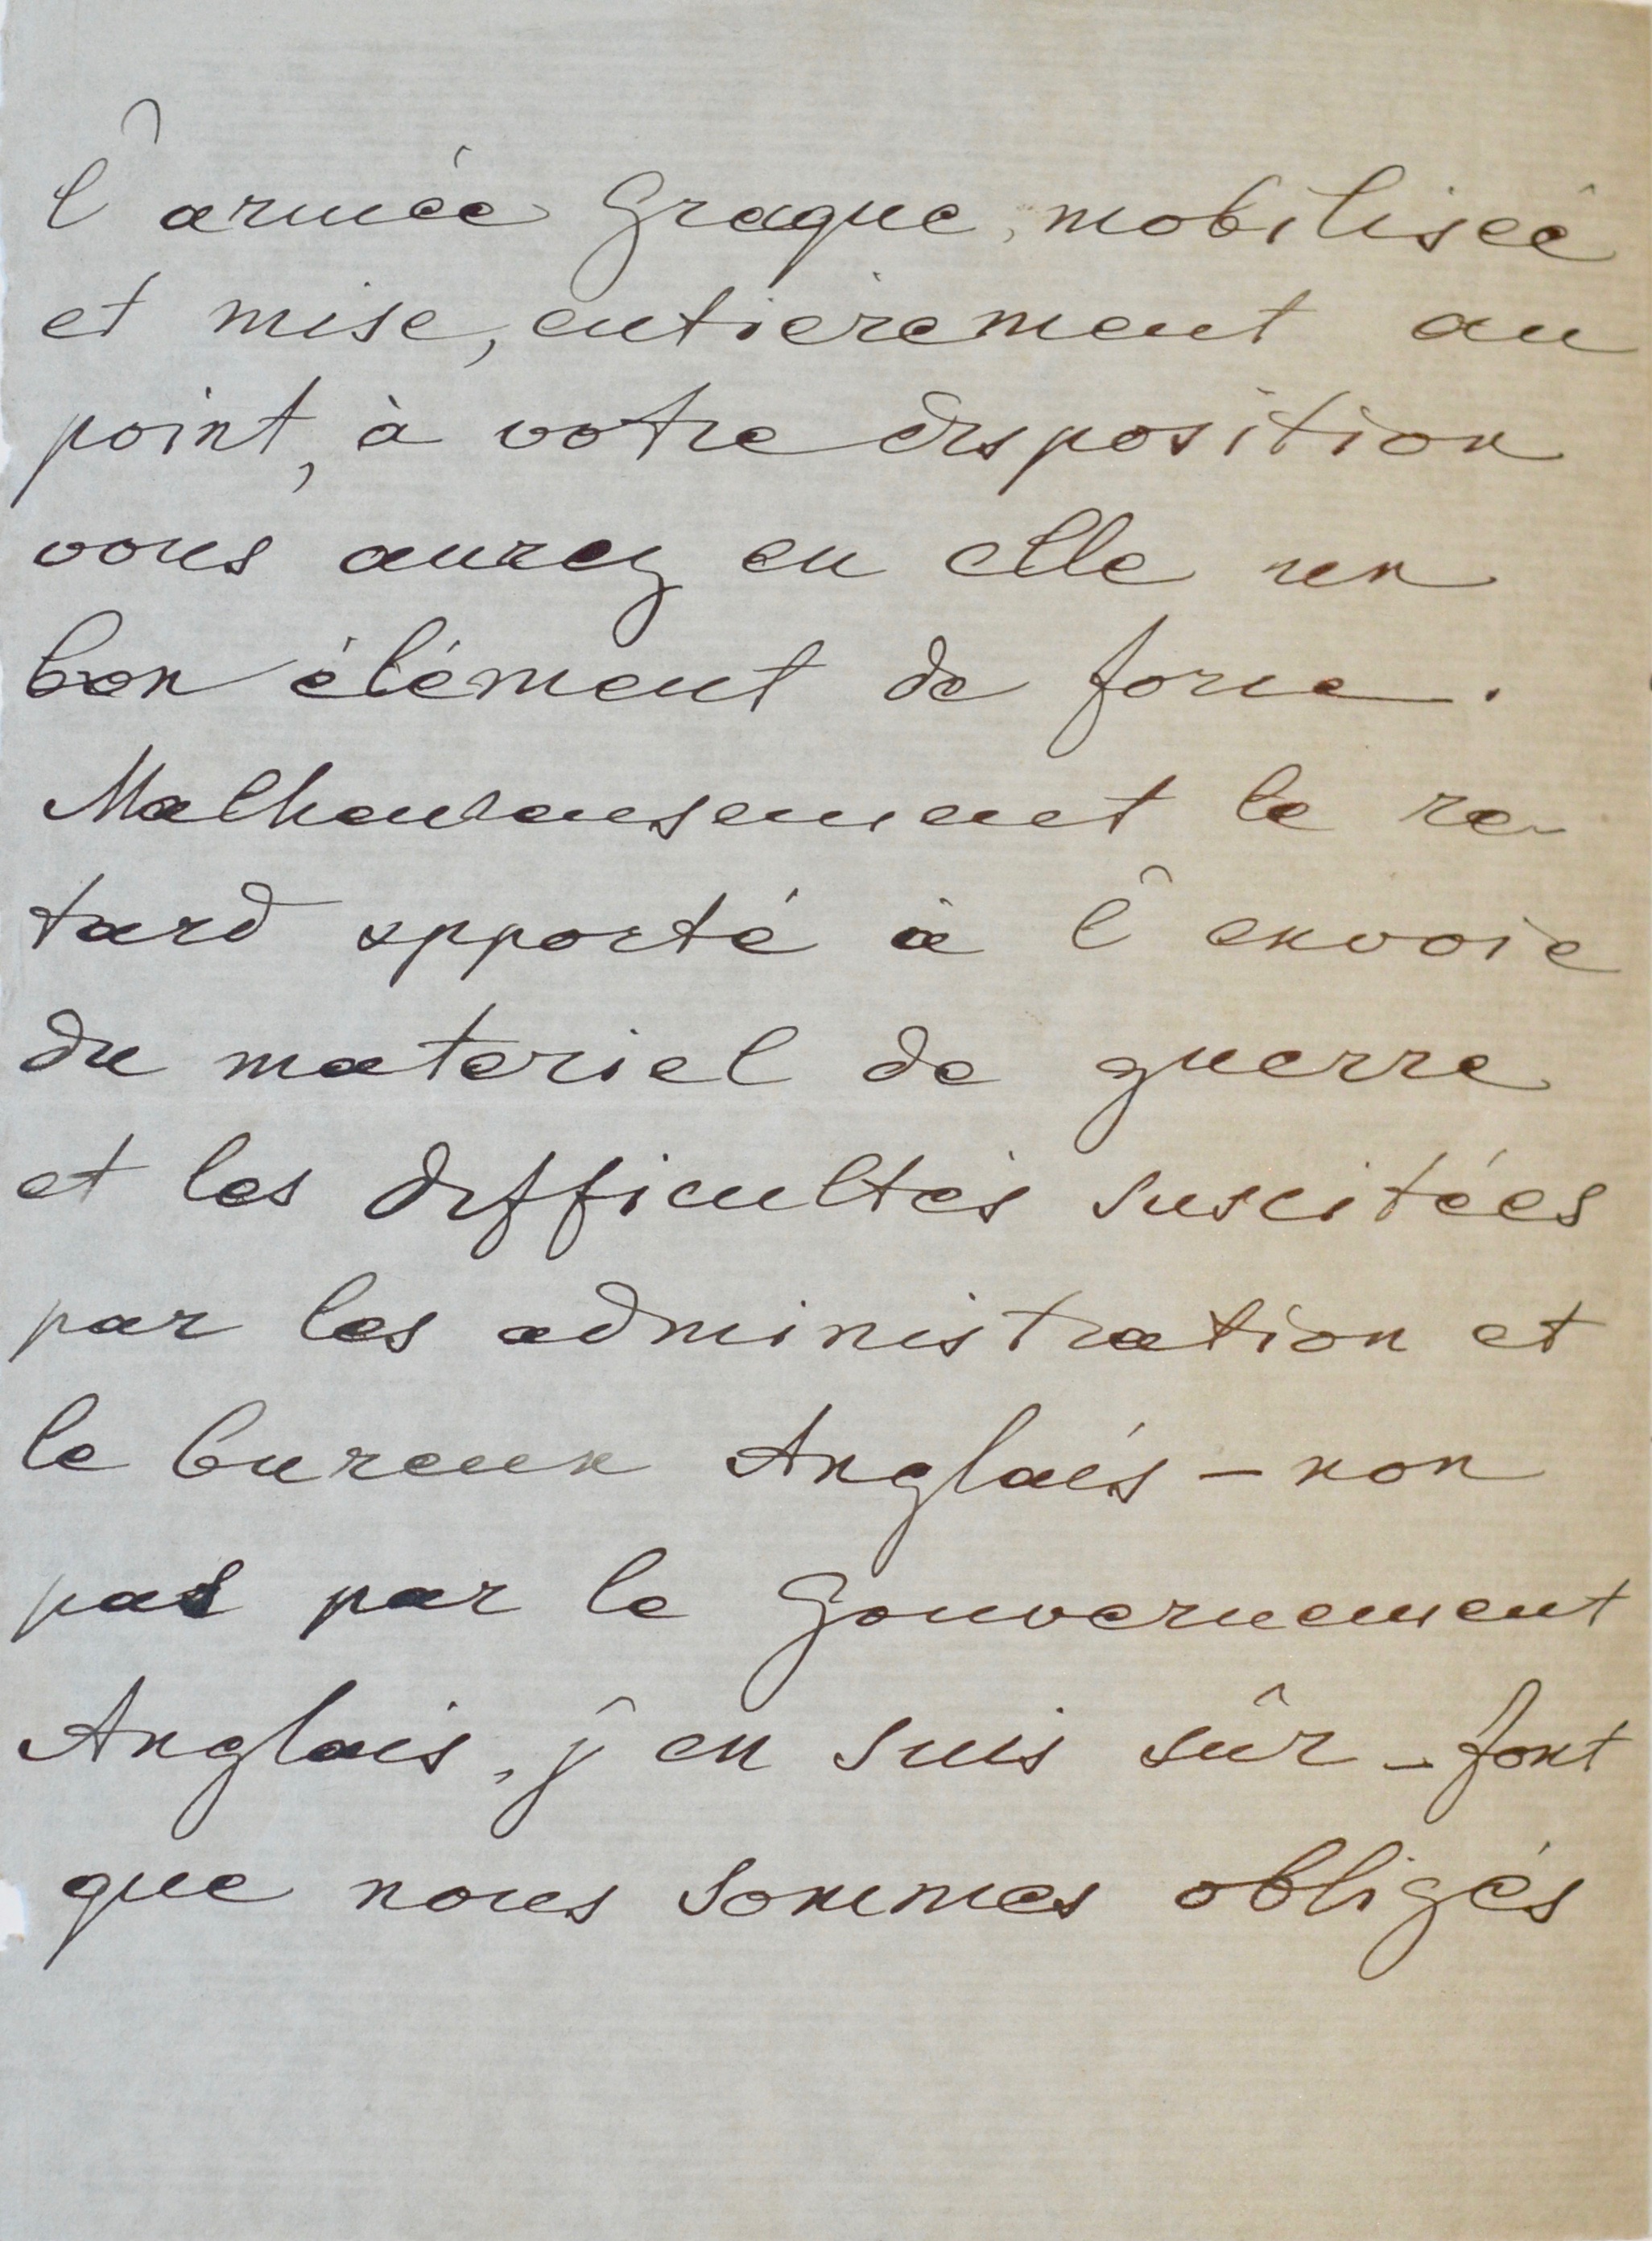 l'armée Greque, mobiliseé
et mise, entièrement au
point, à votre disposition
vous aurez en elle un
bon élément de force.
Malheureusement le re-
tard apporté à l'envoie
du materiel de guerre
et les difficultés suscitées
par les administration et
le bureux Anglais – non
pas par le Gouvernement
Anglais, j'en suis sûr – font
que nous sommes obligés